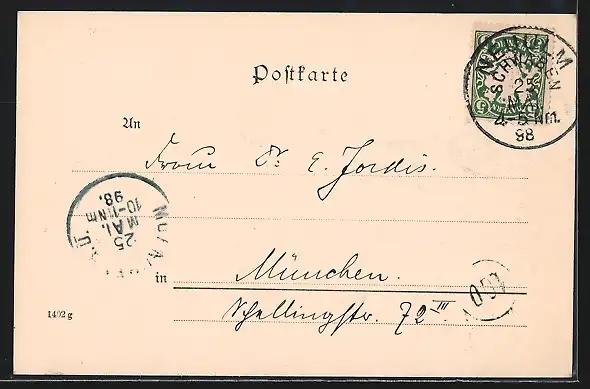 Postkarte
NEU-ULM
SCHWABEN
25
MAI
4-5 Nm.
98
5
An
Frau Dr. E. Jordis.
MÜ
25
MAI.
10-11 Nm
98.
in München.
Schellingstr. 72 III
1402 g